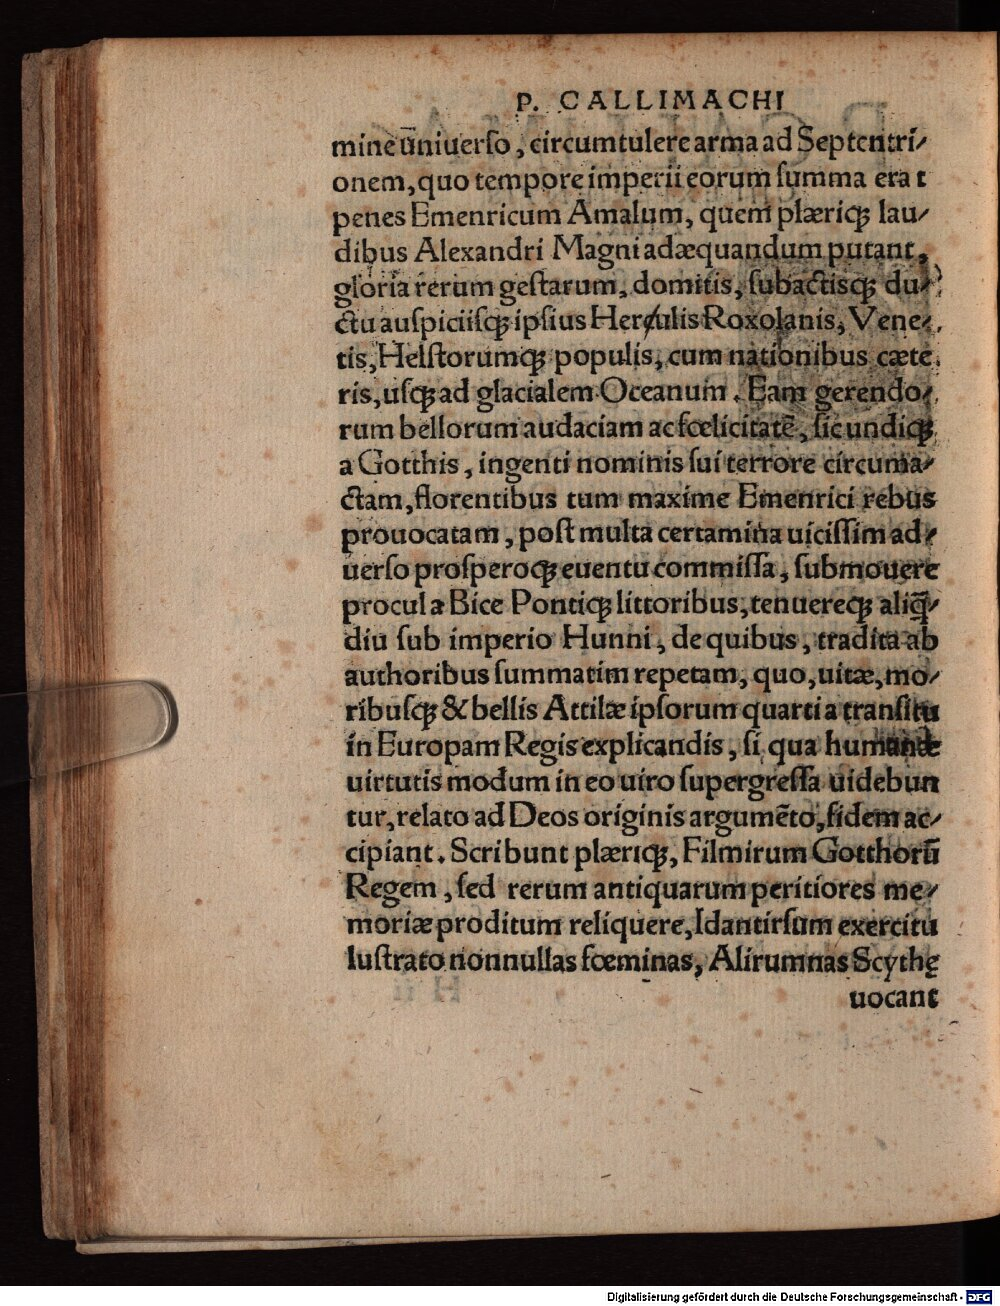 P. CALLIMACHI
mine ūniuerso, circumtulere arma ad Septentri/
onem, quo tempore imperii eorum summa erat
penes Emenricum Amalum, quem plæriqȝ lau/
dibus Alexandri Magni adæquandum putant,
gloria rerum gestarum, domitis, subactisqȝ du/
ctu auspiciisqȝ ipsius Herculis Roxolanis, Vene/
tis, Helstorumqȝ populis, cum nationibus cæte
ris, usqȝ ad glacialem Oceanum. Eam gerendo/
rum bellorum audaciam ac fœlicitatē, sic undiqȝ
a Gotthis, ingenti nominis sui terrore circuma/
ctam, florentibus tum maxime Emenrici rebus
prouocatam, post multa certamina uicissim ad/
uerso prosperoqȝ euentu commissa, submouere
procul a Bice Ponticqȝ littoribus, tenuereqȝ aliq̄/
diu sub imperio Hunni, de quibus, tradita ab
authoribus summatim repetam, quo, uitæ, mo/
ribusqȝ & bellis Attilæ ipsorum quarti a transitu
in Europam Regis explicandis, si qua humanæ
uirtutis modum in eo uiro supergressa uidebun
tur, relato ad Deos originis argumēto, fidem ac/
cipiant. Scribunt plæriqȝ, Filmirum Gotthorū
Regem, sed rerum antiquarum peritiores me/
moriæ proditum reliquere, Idantirsum exercitu
lustrato nonnullas fœminas, Alirumnas Scythę
uocant
Digitalisierung gefördert durch die Deutsche Forschungsgemeinschaft - DFG